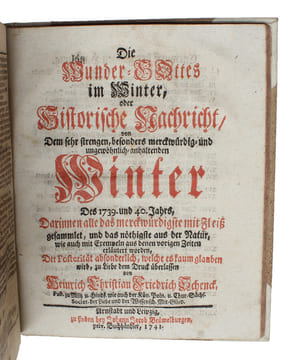 Die
Wunder-GOttes
im Winter,
oder
Historische Nachricht/
von
Dem sehr strengen, besonders merckwürdig- und
ungewöhnlich-anhaltenden
Winter
Des 1739. und 40. Jahrs,
Darinnen alle das merckwürdigste mit Fleiß
gesammlet, und das nöthigste aus der Natur,
wie auch mit Exempeln aus denen vorigen Zeiten
erläutert worden,
Der Posterität absonderlich, welche es kaum glauben
wird, zu Liebe dem Druck überlassen
von
Heinrich Christian Friedrich Schenck,
Past. zu Witz. u. wie auch der Kön. Poln. u. Chur-Sächs.
Societ. der Liebe und der Wissensch. Mit-Glied.
Arnstadt und Leipzig,
zu finden bey Johann Jacob Beumelburgen,
priv. Buchhändler, 1741.